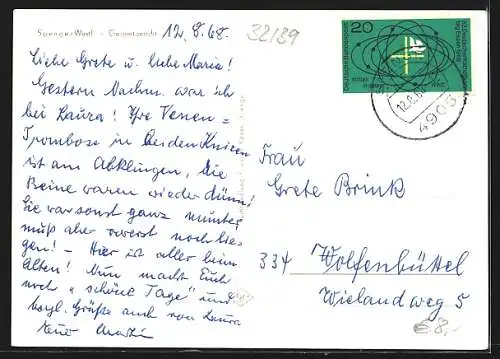 Spenge-Westf. - Gesamtansicht
12.8.68.
32139
Liebe Grete u. liebe Maria!
Gestern Nachm. war ich
bei Laura! Ihre Venen=
Trombose in beiden Knieen
ist am Abklingen, die
Beine waren wieder dünn!
Sie war sonst ganz munter,
muß aber vorerst noch lie=
gen! - Hier ist alles beim
Alten! Nun macht Euch
noch "schöne Tage" und
herzl. Grüße auch von Laura
Frau
Grete Brink
334 Wolfenbüttel
Wielandweg 5
20
Deutsche Bundespost
4905
€ 8,-